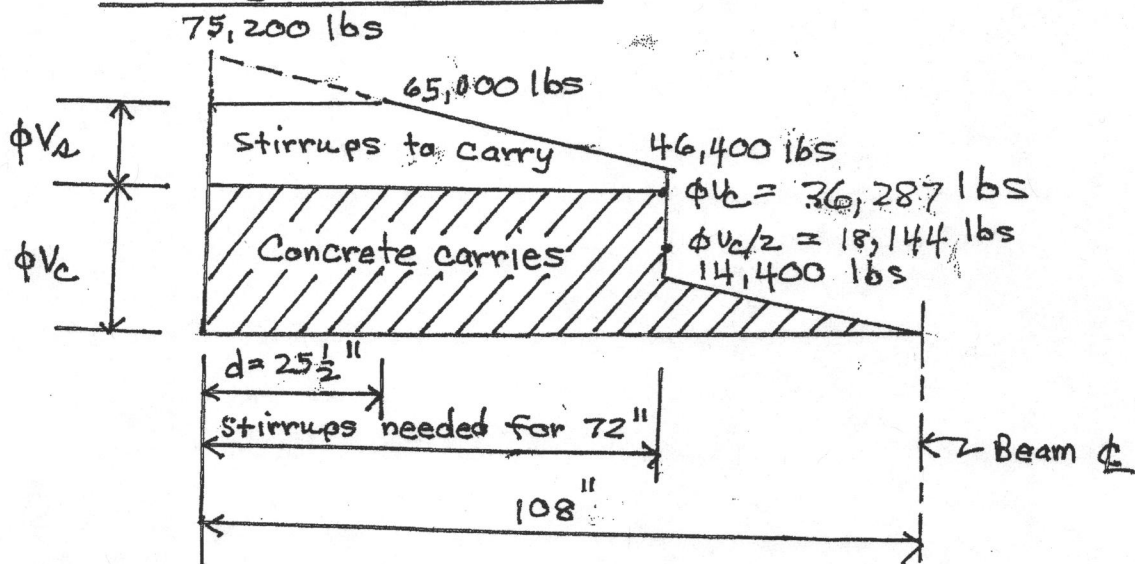 75,200 lbs
65,000 lbs
ϕVs
Stirrups to carry
46,400 lbs
ϕVc = 36,287 lbs
ϕVc
Concrete carries
ϕVc/2 = 18,144 lbs
14,400 lbs
d = 25 1/2"
Stirrups needed for 72"
Beam ℄
108"